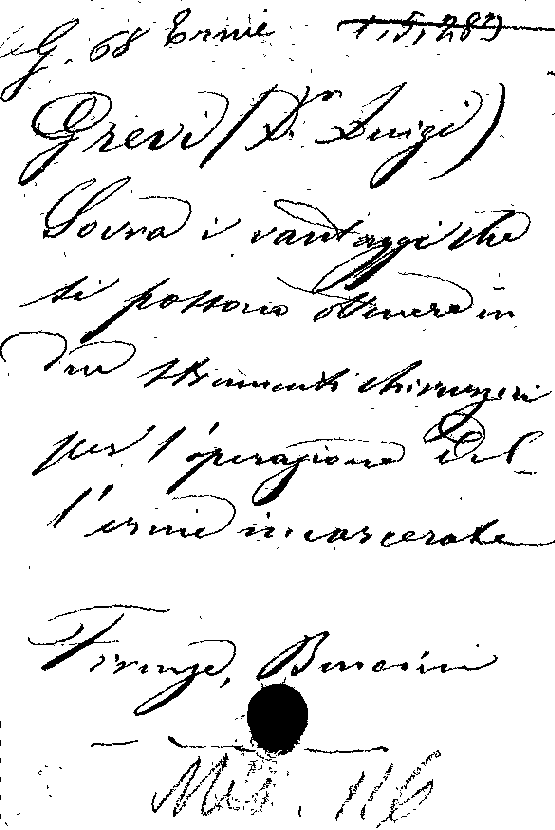 G. 68 Ernie 1, 5, 28
Grevi (Dr. Luigi)
Sovra i vantaggi che
si possono ottenere in
due strumenti chirurgici
per l'operazione del-
l'ernie incarcerate
Firenze, Bencini
Mis. 116